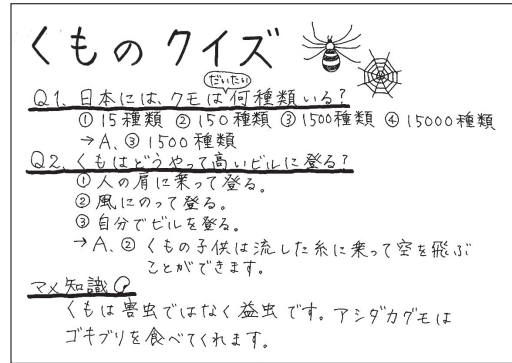 くものクイズ
だいたい
Q1、日本には、クモは何種類いる?
① 15種類 ② 150種類 ③ 1500種類 ④ 15000種類
→A、③ 1500種類
Q2、くもはどうやって高いビルに登る?
① 人の肩に乗って登る。
② 風にのって登る。
③ 自分でビルを登る。
→A、② くもの子供は流した糸に乗って空を飛ぶ
ことができます。
マメ知識
くもは害虫ではなく益虫です。アシダカグモは
ゴキブリを食べてくれます。